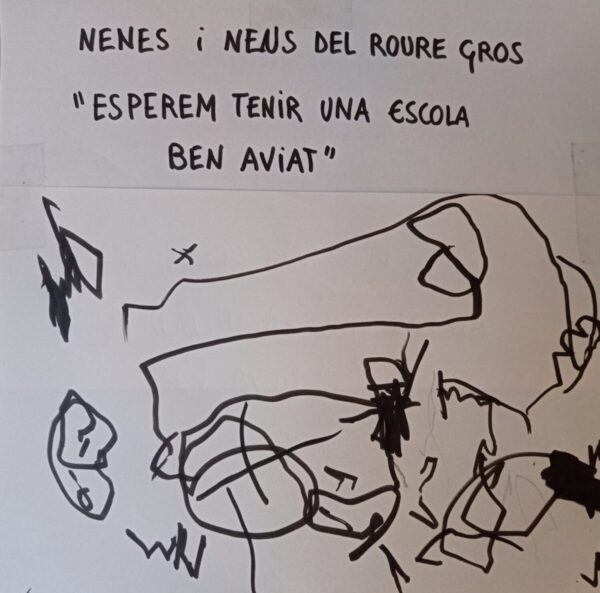 NENES i NENS DEL ROURE GROS
"ESPEREM TENIR UNA ESCOLA
BEN AVIAT"